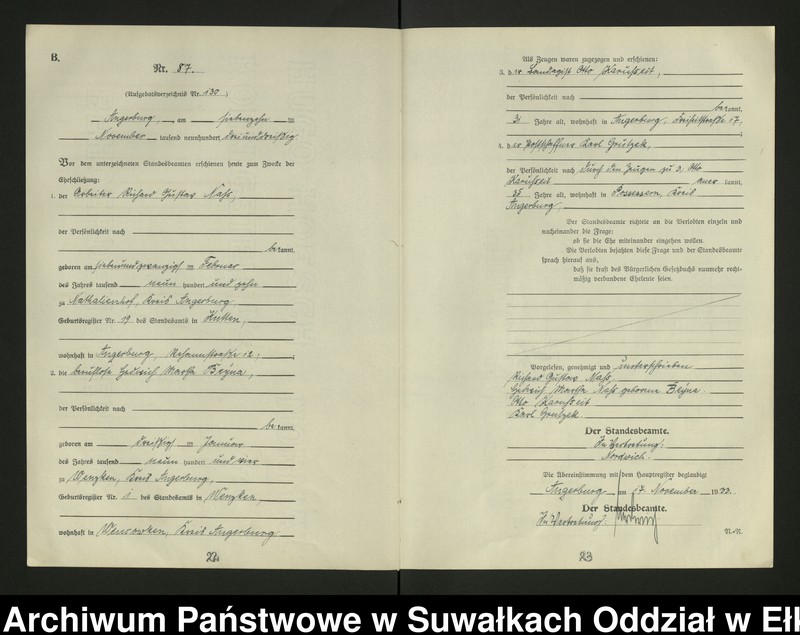 B.
Nr. 87.
(Aufgebotsverzeichnis Nr. 130)
Angerburg, am siebenzehn ten
November tausend neunhundert dreiunddreißig
Vor dem unterzeichneten Standesbeamten erschienen heute zum Zwecke der
Eheschließung:
1. der Arbeiter Richard Gustav Nass,
der Persönlichkeit nach
be kannt,
geboren am siebenundzwanzigsten Februar
des Jahres tausend neun hundert und zehn
zu Nathalienhof, Kreis Angerburg,
Geburtsregister Nr. 19 des Standesamts in
wohnhaft in Angerburg, 12;
2. die berufslose Hedwig Martha Beyna,
der Persönlichkeit nach
be kannt,
geboren am dreißigsten Januar
des Jahres tausend neun hundert und vier
zu Wenzken, Kreis Angerburg,
Geburtsregister Nr. 1 des Standesamts in Wenzken,
wohnhaft in Wensowken, Kreis Angerburg
22
Als Zeugen waren zugezogen und erschienen:
3. der Otto Karuseit,
der Persönlichkeit nach
be kannt,
31 Jahre alt, wohnhaft in Angerburg, 17;
4. der Postschaffner Karl Grutzek,
der Persönlichkeit nach durch den Zeugen zu 3, Otto
Karuseit aner kannt,
35 Jahre alt, wohnhaft in Possessern, Kreis
Angerburg,
Der Standesbeamte richtete an die Verlobten einzeln und
nacheinander die Frage:
ob sie die Ehe miteinander eingehen wollen.
Die Verlobten bejahten diese Frage und der Standesbeamte
sprach hierauf aus,
daß sie kraft des Bürgerlichen Gesetzbuchs nunmehr recht-
mäßig verbundene Eheleute seien.
Vorgelesen, genehmigt und unterschrieben
Richard Gustav Nass
Hedwig Martha Nass geborene Beyna
Otto Karuseit
Karl Grutzek
Der Standesbeamte.
In Vertretung:
Nordwich.
Die Übereinstimmung mit dem Hauptregister beglaubigt
Angerburg, am 17. November 1933.
Der Standesbeamte.
In Vertretung:
23
Archiwum Państwowe w Suwałkach Oddział w Ełk